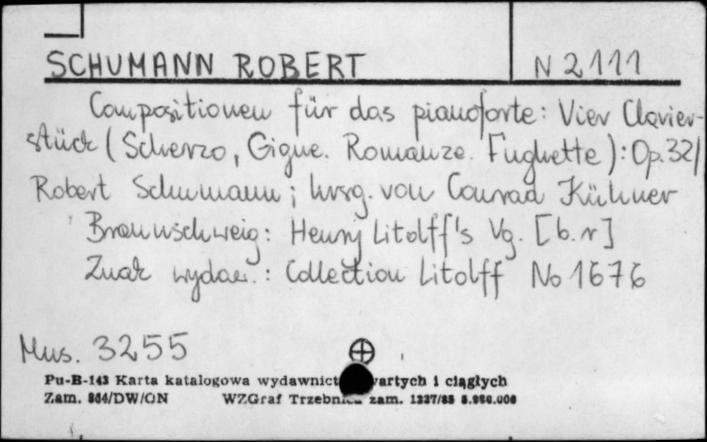 SCHUMANN ROBERT N 2111
Compositionen für das pianoforte: Vier Clavier-
stück (Scherzo, Gigue. Romanze. Fughette): Op. 32/
Robert Schumann; hrsg. von Conrad Kühner
Braunschweig: Henry Litolff's Vg. [b.r]
Znak wydaw.: Collection Litolff No 1676
Mus. 3255
Pu-B-143 Karta katalogowa wydawnict i ciągłych
Zam. 864/DW/ON WZGraf zam. 1227/85